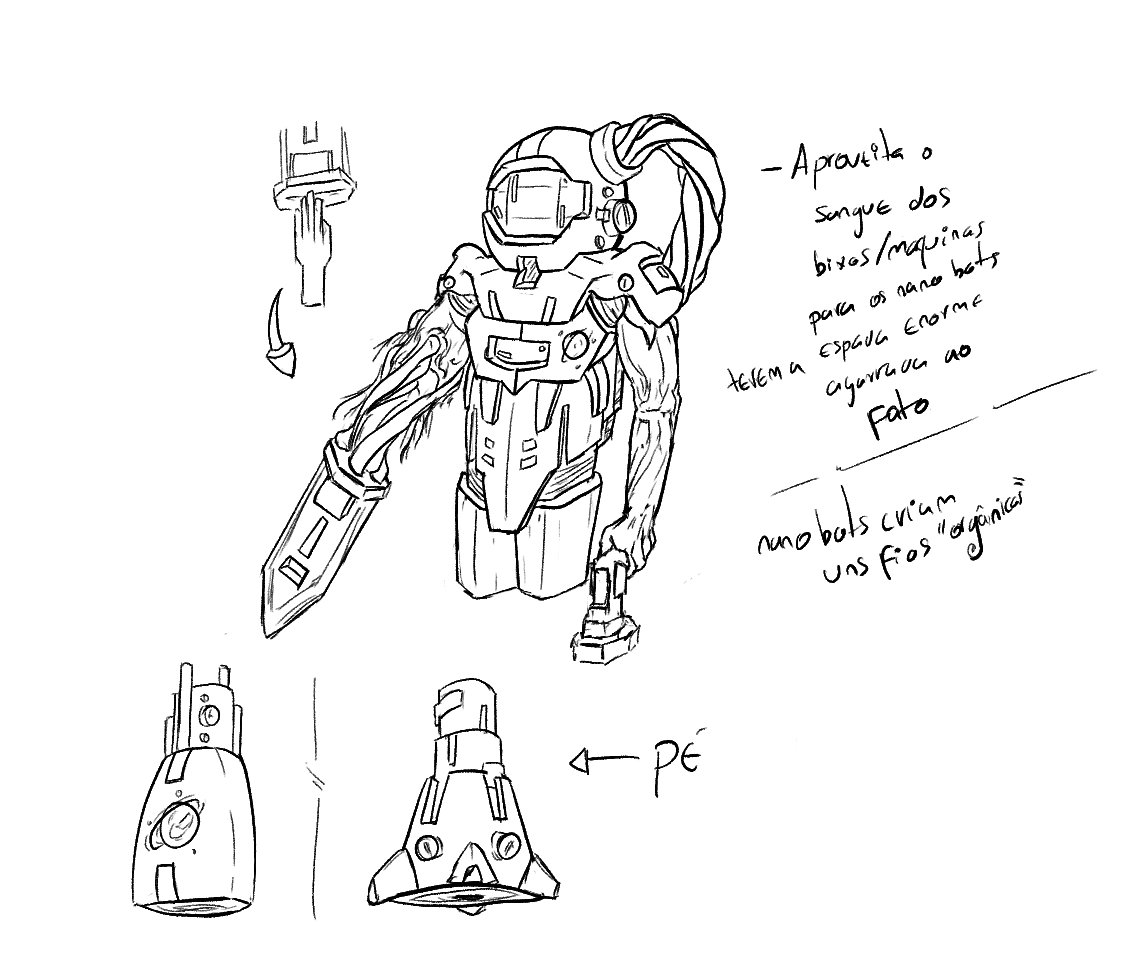 - Aproveita o
sangue dos
bixos/maquinas
para os nano bots
terem a espada enorme
agarrada ao
fato
nano bots criam
uns fios "orgânicos"
← PÉ